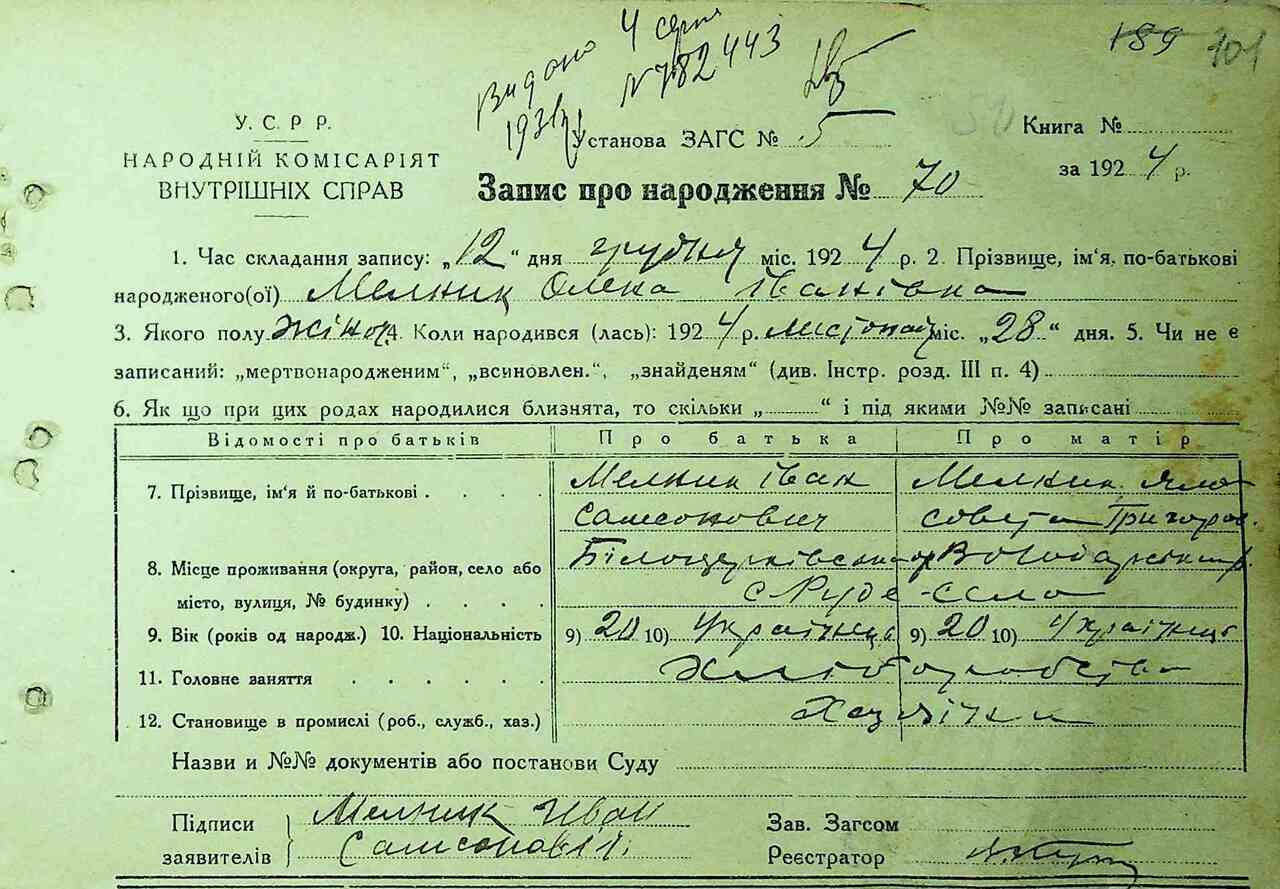 Видано 4 серпн
193 р N 782443
189 101
У. С. Р. Р.
НАРОДНІЙ КОМІСАРІЯТ
ВНУТРІШНІХ СПРАВ
Установа ЗАГС № 5
Книга №
за 1924 р.
Запис про народження № 70
1. Час складання запису: „12“ дня грудня міс. 1924 р. 2. Прізвище, ім‘я, по-батькові
народженого(ої) Мелник Олена Іванівна
3. Якого полу жіноч 4. Коли народився (лась): 1924 р. листопад міс. „28“ дня. 5. Чи не є
записаний: „мертвонародженим“, „всиновлен.“, „знайденям“ (див. Інстр. розд. III п. 4)
6. Як що при цих родах народилися близнята, то скільки „ “ і під якими №№ записані
Відомості про батьків Про батька Про матір
7. Прізвище, ім‘я й по-батькові . . . . Мелник Іван Мелник Яли
Самсонович совета Григоров.
8. Місце проживання (округа, район, село або Білоцерківська Володарський р.
місто, вулиця, № будинку) . . . . с Руде-село
9. Вік (років од народж.) 10. Національність 9) 20 10) Українець 9) 20 10) Українц
11. Головне заняття . . . . . . Хліборобство
12. Становище в промислі (роб., служб., хаз.) Хазяїни
Назви и №№ документів або постанови Суду
Підписи Мелник Иван Зав. Загсом
заявителів Самсонович. Реєстратор